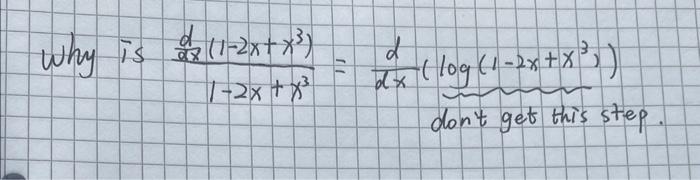 why is \frac{\frac{d}{dx}(1-2x+x^3)}{1-2x+x^3} = \frac{d}{dx}(log(1-2x+x^3))
don't get this step.